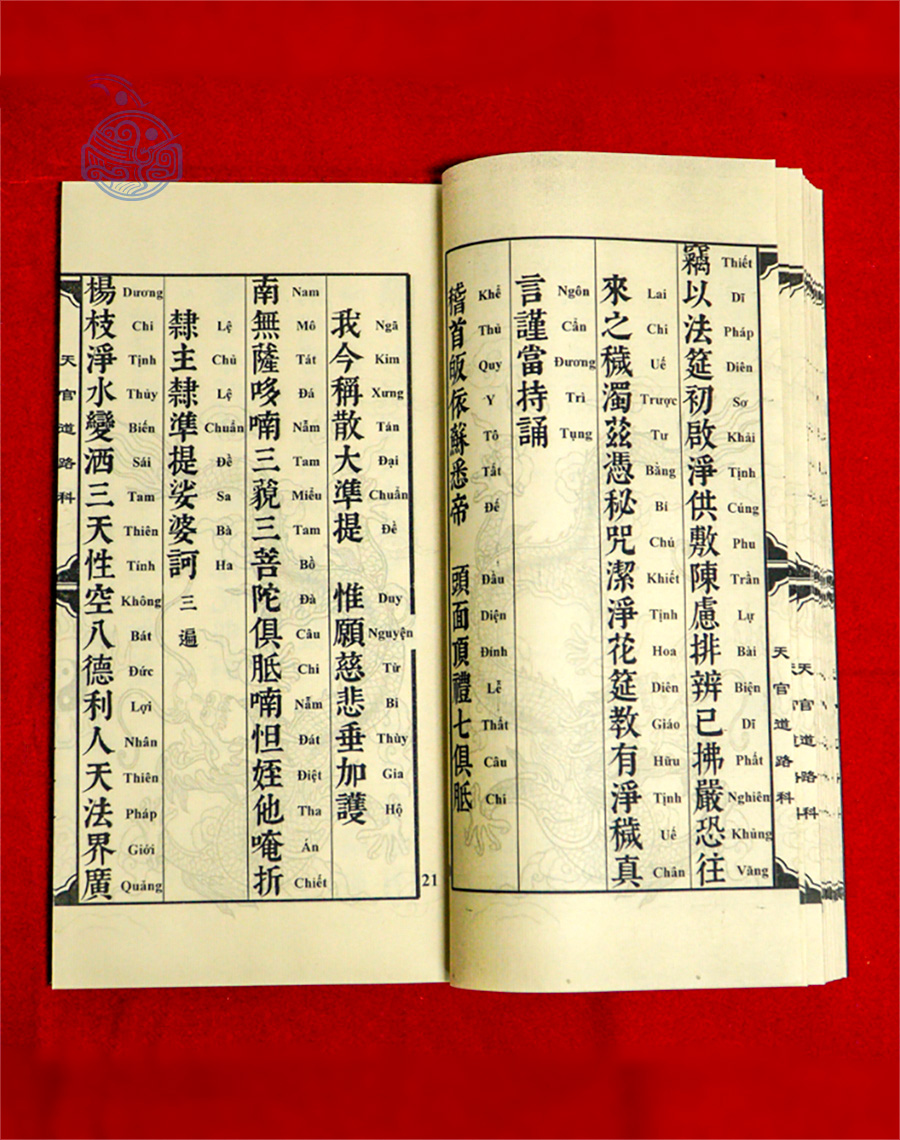 天官道路科
天官道路科
竊以法筵初啟淨供敷陳慮排辨已拂嚴恐往
Thiết Dĩ Pháp Diên Sơ Khải Tịnh Cúng Phu Trần Lự Bài Biện Dĩ Phất Nghiên Khủng Vãng
來之穢濁茲憑秘咒潔淨花筵教有淨穢真
Lai Chi Uế Trược Tư Bằng Bí Chú Khiết Tịnh Hoa Diên Giáo Hữu Tịnh Uế Chân
言謹當持誦
Ngôn Cẩn Đương Trì Tụng
稽首皈依蘇悉帝 頭面頂禮七俱胝
Khể Thủ Quy Y Tô Tất Đế Đầu Diện Đính Lễ Thất Câu Chi
我今稱散大準提 惟願慈悲垂加護
Ngã Kim Xưng Tán Đại Chuẩn Đề Duy Nguyện Từ Bi Thùy Gia Hộ
南無薩哆喃三藐三菩陀俱胝喃怛姪他唵折
Nam Mô Tát Đá Nẵm Tam Miểu Tam Bồ Đà Câu Chi Nẵm Đát Điệt Tha Án Chiết
隸主隸準提娑婆訶 三遍
Lệ Chủ Lệ Chuẩn Đề Sa Bà Ha
楊枝淨水變洒三天性空八德利人天法界廣
Dương Chi Tịnh Thủy Biến Sái Tam Thiên Tính Không Bát Đức Lợi Nhân Thiên Pháp Giới Quảng
天官道路科
21